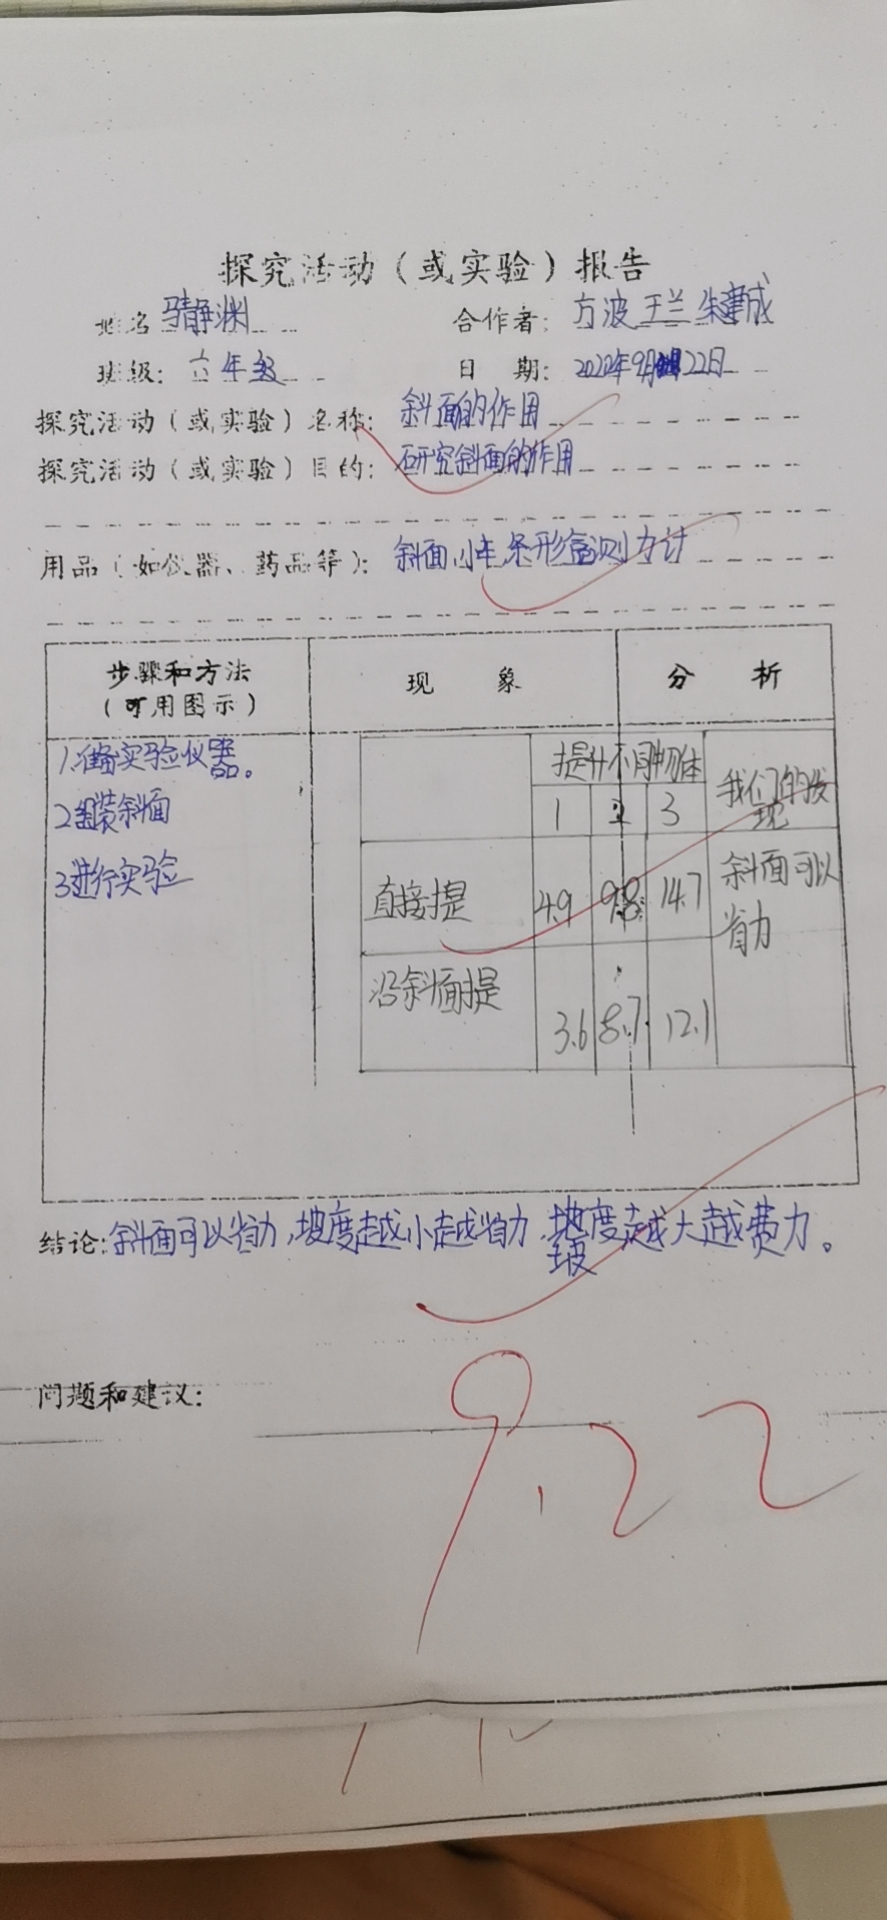 探究活动（或实验）报告
姓名 骑静渊 合作者：方波 王兰 朱建成
班级：六年级 日 期：2022年9月22日
探究活动（或实验）名称：斜面的作用
探究活动（或实验）目的：研究斜面的作用
用品（如仪器、药品等）：斜面 小车 条形盒 测力计
步骤和方法 现 象 分 析
（可用图示）
1.准备实验仪器。
2组装斜面
3进行实验
提升不同物体 我们的发现
1 2 3
直接提 4.9 9.8 14.7 斜面可以省力
沿斜面提 3.6 8.7 12.1
结论：斜面可以省力，坡度越小越省力，坡度越大越费力。
问题和建议：
9.22